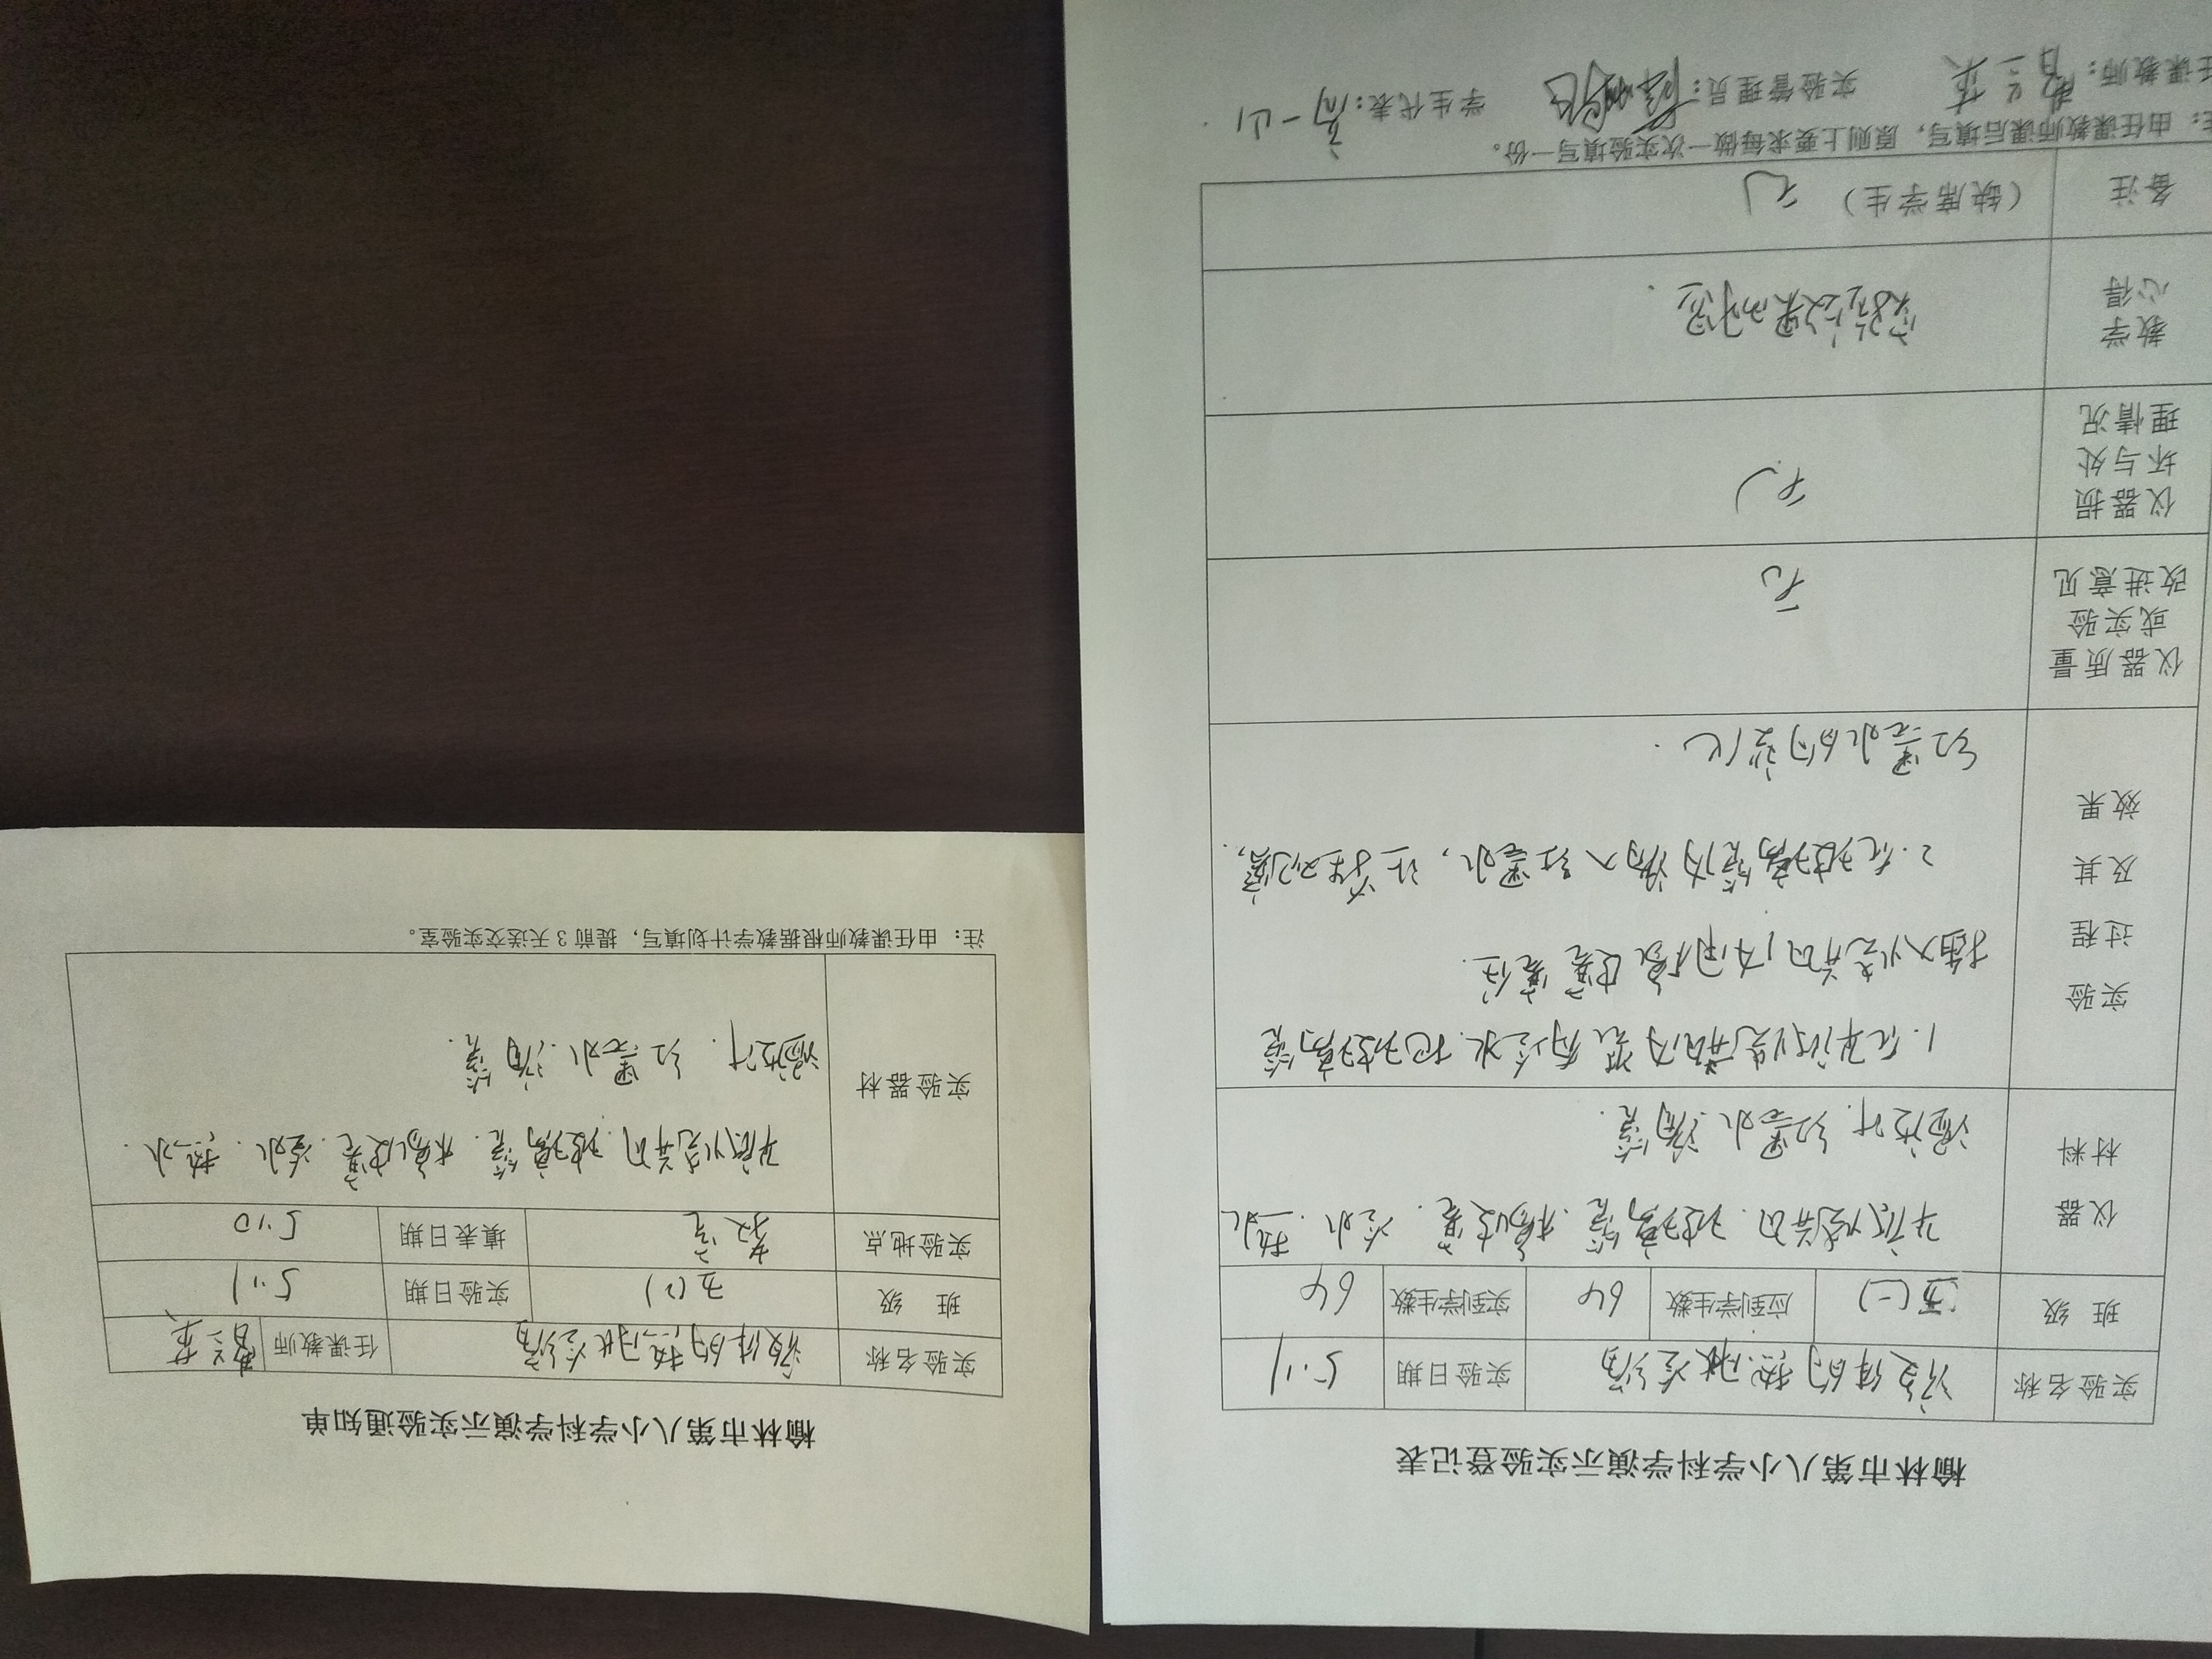 榆林市第八小学科学演示实验登记表
实验名称 液体的热胀冷缩 实验日期 5.11
班 级 五(一) 应到学生数 64 实到学生数 64
仪器材料 平底烧瓶 玻璃管 橡皮塞 冷水 热水
温度计 红墨水 滴管
实验过程及其效果 1.在平底烧瓶内装有冷水 把玻璃管
插入烧瓶 用橡皮塞塞住
2.在玻璃管内滴入红墨水，让学生观察
红墨水的变化
仪器质量或实验改进意见 无
仪器损坏与处理情况 无
教学心得 实验效果明显
备注 （缺席学生） 无
注：由任课教师课后填写，原则上要求每做一次实验填写一份。
任课教师： 实验管理员： 学生代表：高一山
榆林市第八小学科学演示实验通知单
实验名称 液体的热胀冷缩 任课教师
班 级 实验日期 5.11
实验地点 教室 填表日期 5.10
实验器材 平底烧瓶 玻璃管 橡皮塞 冷水 热水
温度计 红墨水 滴管
注：由任课教师根据教学计划填写，提前3天送交实验室。